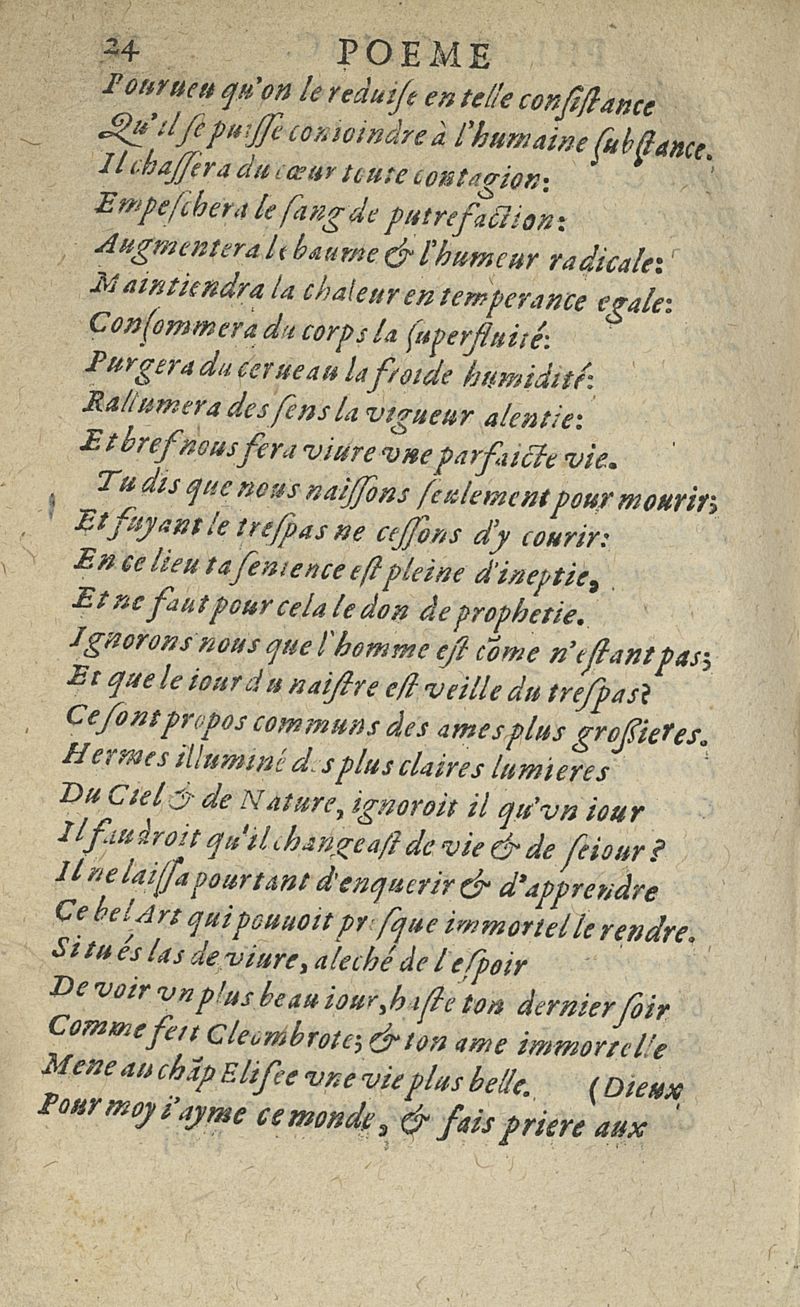 24 POEME
Pourueu qu'on le reduiſe en telle conſiſtance
Qu'il ſe puiſſe conioindre à l'humaine ſubſtance.
Il chaſſera du cœur toute contagion:
Empeſchera le ſang de putrefaction:
Augmentera le baume & l'humeur radicale:
Maintiendra la chaleur en temperance egale:
Conſommera du corps la ſuperfluité:
Purgera du cerueau la froide humidité:
Rallumera des ſens la vigueur alentie:
Et bref nous fera viure vne parfaicte vie.
Tu dis que nous naiſſons ſeulement pour mourir;
Et fuyant le treſpas ne ceſſons d'y courir:
En ce lieu ta ſentence eſt pleine d'ineptie,
Et ne faut pour cela le don de prophetie.
Ignorons nous que l'homme eſt cõme n'eſtant pas;
Et que le iour du naiſtre eſt veille du treſpas?
Ce ſont propos communs des ames plus groſsieres.
Hermes illuminé des plus claires lumieres
Du Ciel & de Nature, ignoroit il qu'vn iour
Il faudroit qu'il changeaſt de vie & de ſeiour?
Il ne laiſſa pourtant d'enquerir & d'apprendre
Ce bel Art qui pouuoit preſque immortel le rendre.
Si tu és las de viure, aleché de l'eſpoir
De voir vn plus beau iour, haſte ton dernier ſoir
Comme feit Cleombrote; & ton ame immortelle
Mene au chãp Eliſee vne vie plus belle. (Dieux
Pour moy i'ayme ce monde, & fais priere aux